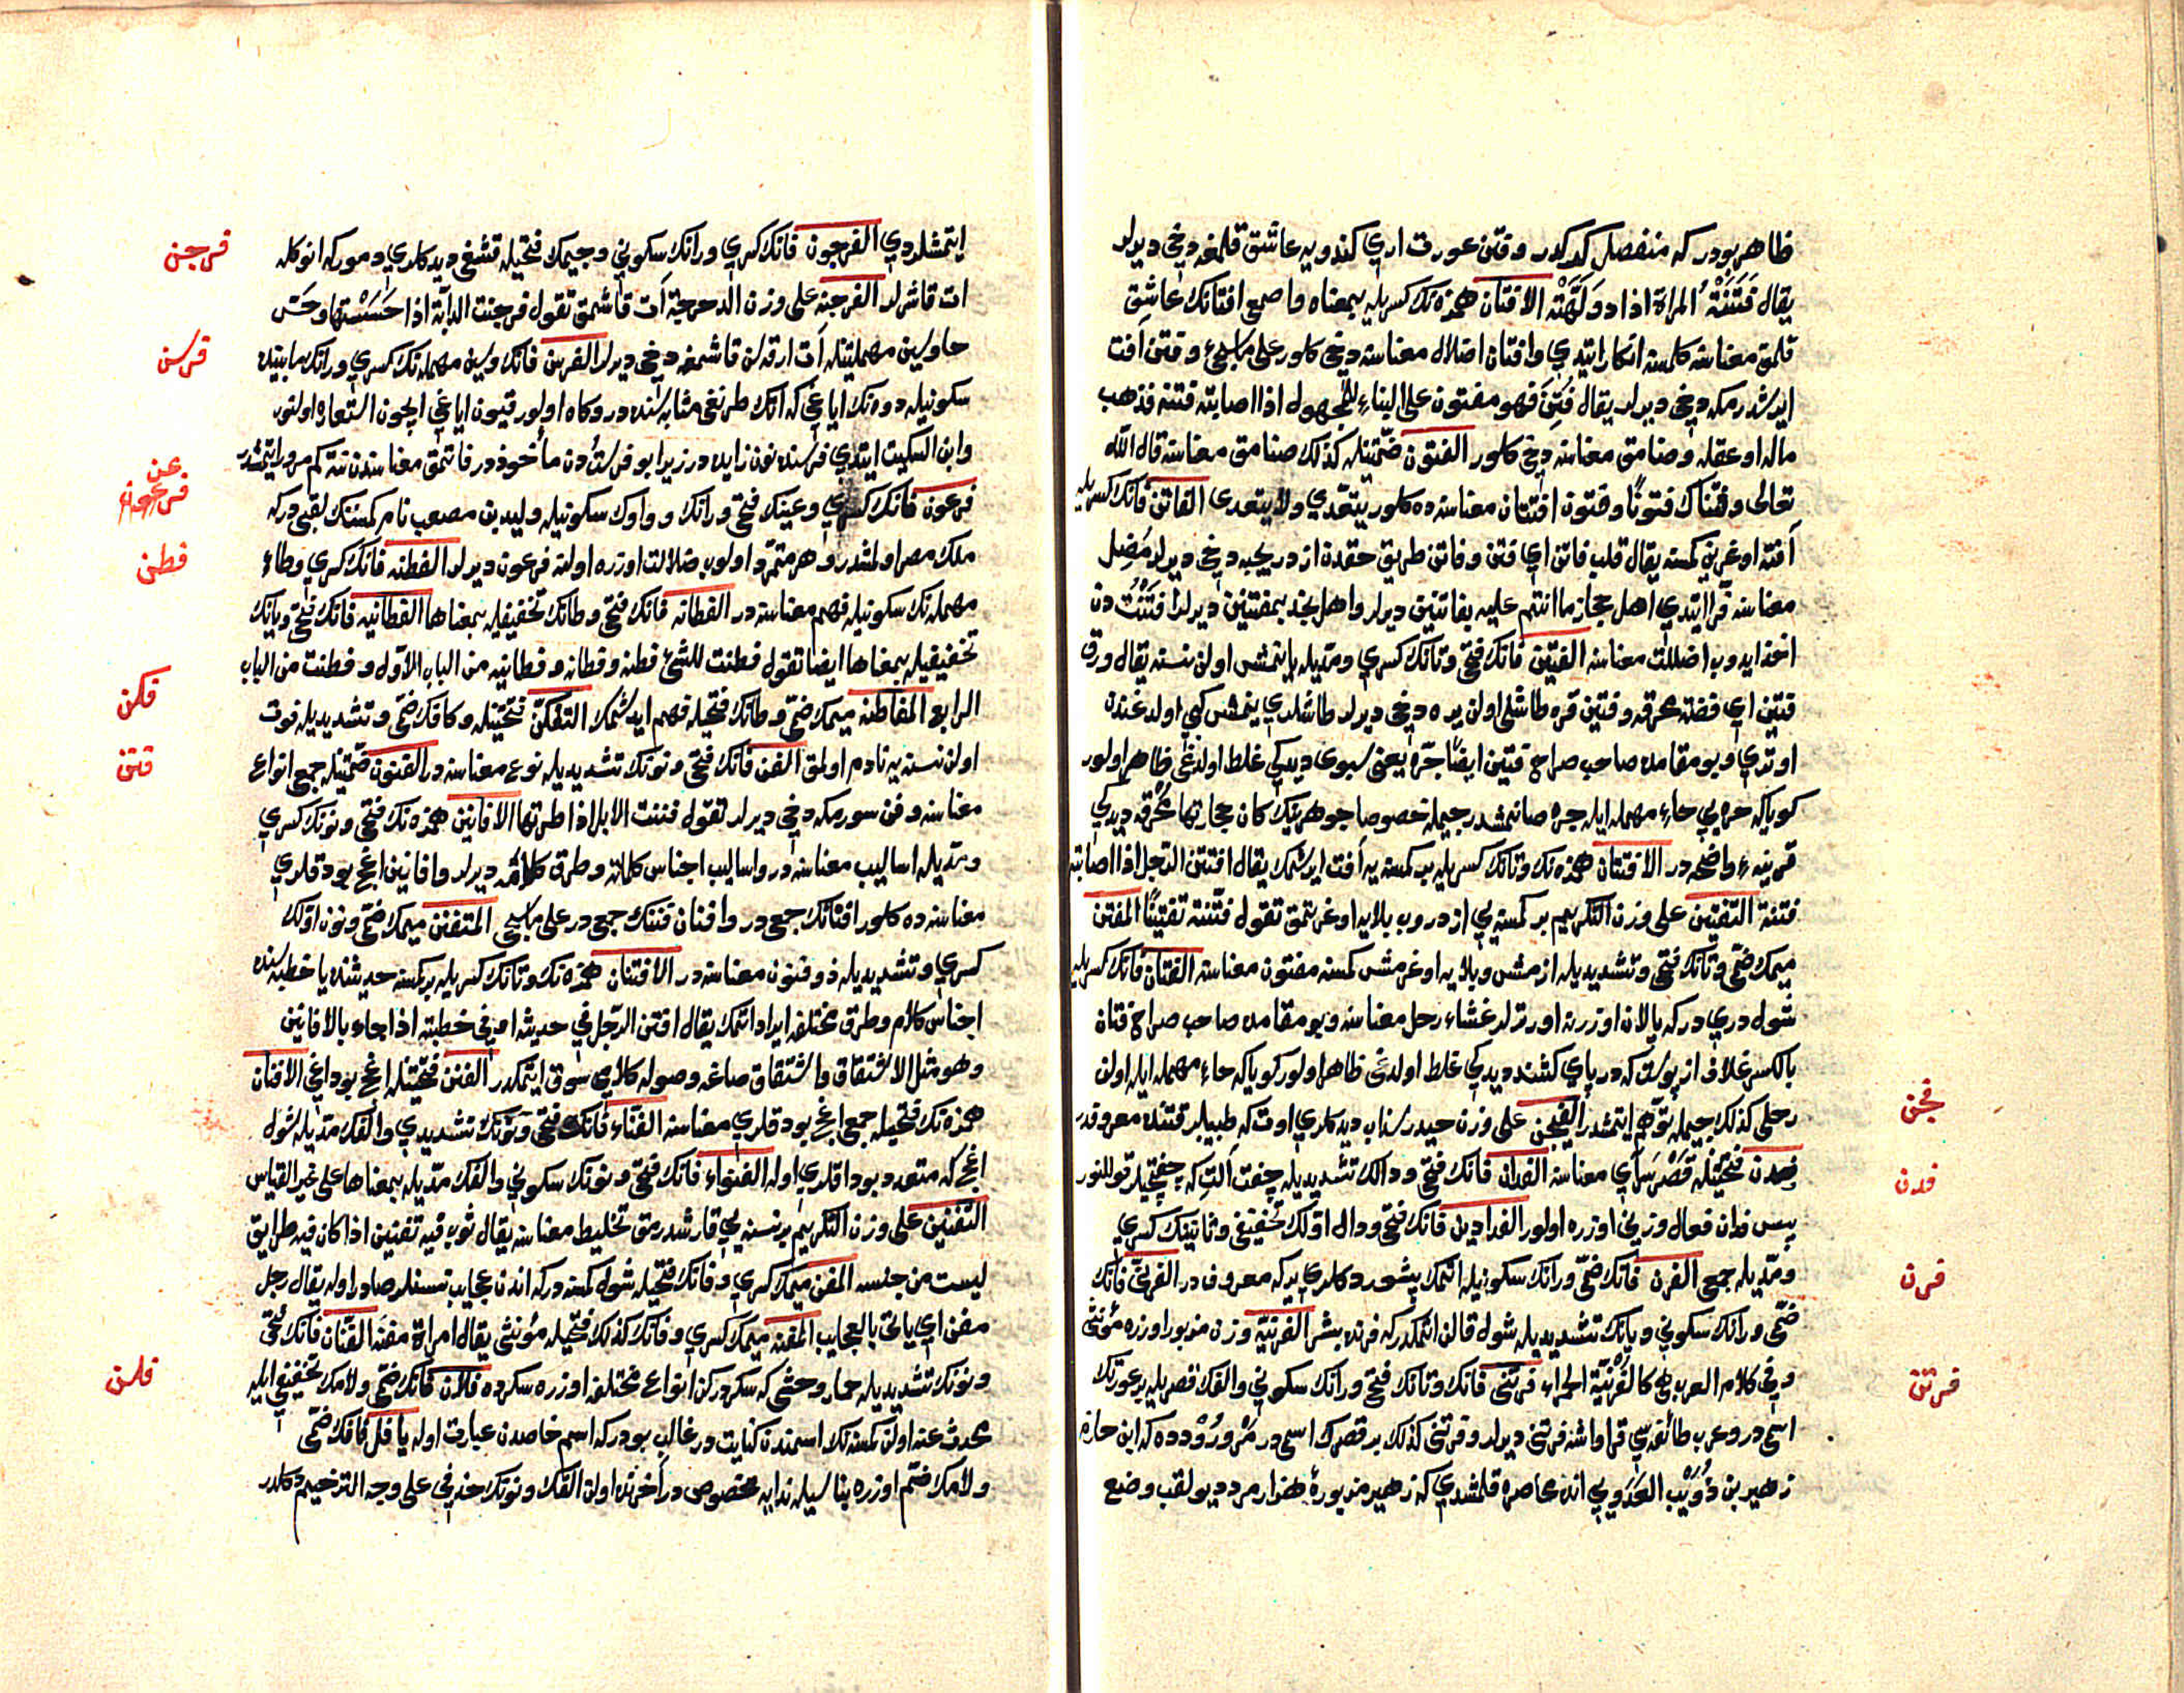 ظاهر بودر كه منفصل كدركدر وفتن عورت اري كندويه عاشق قلمغه دخي ديرلر
يقال فَتَنَتْهُ المراة اذا دوَلَّهَتْه الافتان همزه نك كسريله بمعناه واصمعي افتانك عاشق
قلمق معناسنه كلمسنه انكار ايتدي وافتان اضلال معناسنه دخي كلور على ماسيجئ وفتن آفت
ايرشدرمكه دخي ديرلر يقال فُتِنَ فهو مفتون على البناء للمجهول اذا اصابته فتنة فذهب
ماله او عقله وصنامق معناسنه دخي كلور الفتون ضمّتيله كذلك صنامق معناسنه قال الله
تعالى وفتنّاك فتونًا وفتون افتتان معناسنه ده كلور يتعدّي ولايتعدى الفاتن فانك كسريله
آفته اوغرين كمسنه يقال قلب فاتن اي فتن وفاتن طريق حقدن ازدريجيه دخي ديرلر مُضِل
معناسنه فرّا ايتدي اهل حجاز ما انتم عليه بفاتنين ديرلر واهل نجد بمفتنين ديرلر افتَنْتُ دن
اخذ ايدوب اضللت معناسنه الفتين فانك فتحي وتانك كسري ومدّيله يانمش اولن نسنه يقال ورق
فتين اي فضة محرقه وفتين قره طاشلي اولن يره دخي ديرلر طاشلري ينمش كبي اولدغندن
اوتدي وبو مقامده صاحب صراح فتين ايضًا جرّه يعني سبوى ديديكي غلط اولدغي ظاهر اولور
كوياكه حره يي حاء مهمله ايله جره صانمشدر جيمله خصوصا جوهرينك كان حجارتها محرقه ديديكي
قرينهء واضحه در الافتتان همزه نك وتانك كسريله بر كمسنه يه آفت ايرشمك يقال افتتن الرجل اذا اصابته
فتنة التفتين على وزن التكريم بر كمسنه يي ازدروب بلايه اوغرتمق تقول فتّنته تفتينًا المفتن
ميمك ضمّي وتانك فتحي وتشديديله ازمش وبلايه اوغرمش كمسنه مفتون معناسنه الفتان فانك كسريله
شول دري دركه پالان اوزرنه اورترلر غشاء رحل معناسنه وبو مقامده صاحب صراح فتان
بالكسر غلاف از پوست كه در پاي كشند ديديكي غلط اولدغي ظاهر اولور كوياكه حاء مهمله ايله اولن
رحلي كذلك جيمله توهّم ايتمشدر الفيجن على وزن حيدر سذاب ديدكلري اوت كه طبيبلر قتنده معروفدر
فدن فتحتيله قَصْر سَرآي معناسنه الفدان فانك فتحي ودالك تشديديله چفت آلتي كه چفتجيلر قوللنور
پس فدان فعال وزني اوزره اولور الفدادين فانك فتحي ودال اوّلك تخفيفي وثانينك كسري
ومدّيله جمع الفرن فانك ضمّي ورانك سكونيله اتمك پشوردكلري يركه معروفدر الفرنيّ فانك
ضمّي ورانك سكوني ويانك تشديديله شول قالن اتمكدركه فرنده بشر الفرنيّة وزن مزبور اوزره مؤنثي
وفي كلام العرب هي كالفُرْنيّة الحمراء فرتنى فانك وتانك فتحي ورانك سكوني والفك قصريله بر عورتك
اسمي در وعرب طائفه سي قراواشه فرتنى ديرلر وفرتنى كذلك بر قصرك اسمي در مَرْوِرُوْذده كه ابن حازم
زهير بن ذُوَيْب العَدَوي بي انده محاصره قلمشدي كه زهير مزبوره هزار مرد ديو لقب وضع
فجن
فدن
فرن
فرتن
ايتمشلردي الفرجون فانك كسري ورانك سكوني وجيمك فتحيله قشغي ديدكلري دموركه انوكله
ات قاشرلر الفرجنة على وزن الدحرجة آت قاشمق تقول فرجنت الدابّة اذا حَسَسْتها وحَسّ
حا وسين مهملتيله آت ارقه سن قاشمغه دخي ديرلر الفرسن فانك وسين مهمله نك كسري ورانك مابينده
سكونيله دوه نك اياغي كه آتك طرنغي مثابه سنده در وكاه اولور قيون اياغي ايچون استعاره اولنور
وابن السكيت ايتدي فرسنده نون زايده در زيرا بو فرست دن مأخوذدر
فرعون فانك كسري وعينك فتحي ورانك وواوك سكونيله وليد بن مصعب نام كمسنه نك لقبي دركه
ملك مصر اولمشدر وهر متمرّد اولوب ضلالت اوزره اولنه فرعون ديرلر الفطنة فانك كسري وطاء
مهمله نك سكونيله فهم معناسنه در الفطانة فانك فتحي وطانك تخفيفيله بمعناها الفطانية فانك فتحي ويانك
تخفيفيله بمعناها ايضا تقول فطنت للشئ فطنة وفطانة وفطانية من الباب الاوّل وفطنت من الباب
الرابع المفاطنة ميمك ضمّي وطانك فتحيله فهم ايدشمك التفكّن فتحتيله وكافك ضمّي وتشديديله فوت
اولن نسنه يه نادم اولمق الفن فانك فتحي ونونك تشديديله نوع معناسنه در الفنون ضمّتيله جمع انواع
معناسنه وفن سورمكه دخي ديرلر تقول فننت الابل اذا طردتها الافانين همزه نك فتحي ونونك كسري
ومدّيله اساليب معناسنه در واساليب اجناس كلامه وطرق كلامه ديرلر وافانين اغج بوداقلري
معناسنه ده كلور افنانك جمعي در وافنان فننك جمعي در على ماسيجئ المتفنن ميمك ضمّي ونون اوّلك
كسري وتشديديله ذو فنون معناسنه در الافتنان همزه نك وتانك كسريله بر كمسنه حديثنده يا خطبه سنده
اجناس كلام وطرق مختلفه ايراد اتمك يقال افتن الرجل في حديثه او في خطبته اذا جاء بالافانين
وهو مثل الاشتقاق واشتقاق صاغه وصوله كلامي سوق ايتمكدر الفنن فتحتيله اغج بوداغي الافنان
همزه نك فتحيله جمع اغج بوداقلري معناسنه الفنّاء فانك فتحي ونونك تشديدي والفك مدّيله شول
اغج كه متعدد بوداقلري اوله الفنواء فانك فتحي ونونك سكوني والفك مدّيله بمعناها على غير القياس
التفنين على وزن التكريم بر نسنه يي قارشدرمق تخليط معناسنه يقال ثوب فيه تفنين اذا كان فيه طرايق
ليست من جنسه المفن ميمك كسري وفانك فتحيله شول كمسنه دركه اندن عجايب نسنلر صادر اوله يقال رجل
مفن اي ياتي بالعجايب المفنة ميمك كسري وفانك كذلك فتحيله مؤنثي يقال امراة مفنّة الفنّان فانك فتحي
ونونك تشديديله حمار وحشي كه سكردركن انواع مختلفه اوزره سكرده فلان فانك ضمّي ولامك تخفيفي ايله
محدث عنه اولن كمسنه نك اسمندن كنايت در غالب بودركه اسم خاصدن عبارت اوله يا فل فانك ضمّي
ولامك ضم اوزره بناسيله ندايه مخصوص در آخرنده اولن الفك ونونك حذفي على وجه الترخيم دكلدر
فرجن
فرسن
فرعن
فطن
فكن
فنن
فلن